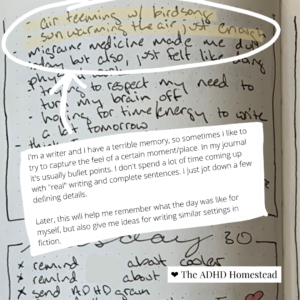 - air teeming w/ birdsong
- sun warming the air just enough
migraine medicine made me
but also just felt like
to respect my need to
turn my brain off
- hoping for time/energy to write
a lot tomorrow
I'm a writer and I have a terrible memory, so sometimes I like to
try to capture the feel of a certain moment/place. In my journal
it's usually bullet points. I don't spend a lot of time coming up
with "real" writing and complete sentences. I just jot down a few
defining details.
Later, this will help me remember what the day was like for
myself, but also give me ideas for writing similar settings in
fiction.
30
x remind about cooler
x remind about
x send ADHD
❤ The ADHD Homestead